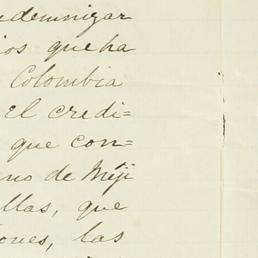 demnizar
ios que ha
Colombia
El credi=
que con=
no de Méji
llas, que
ones, las